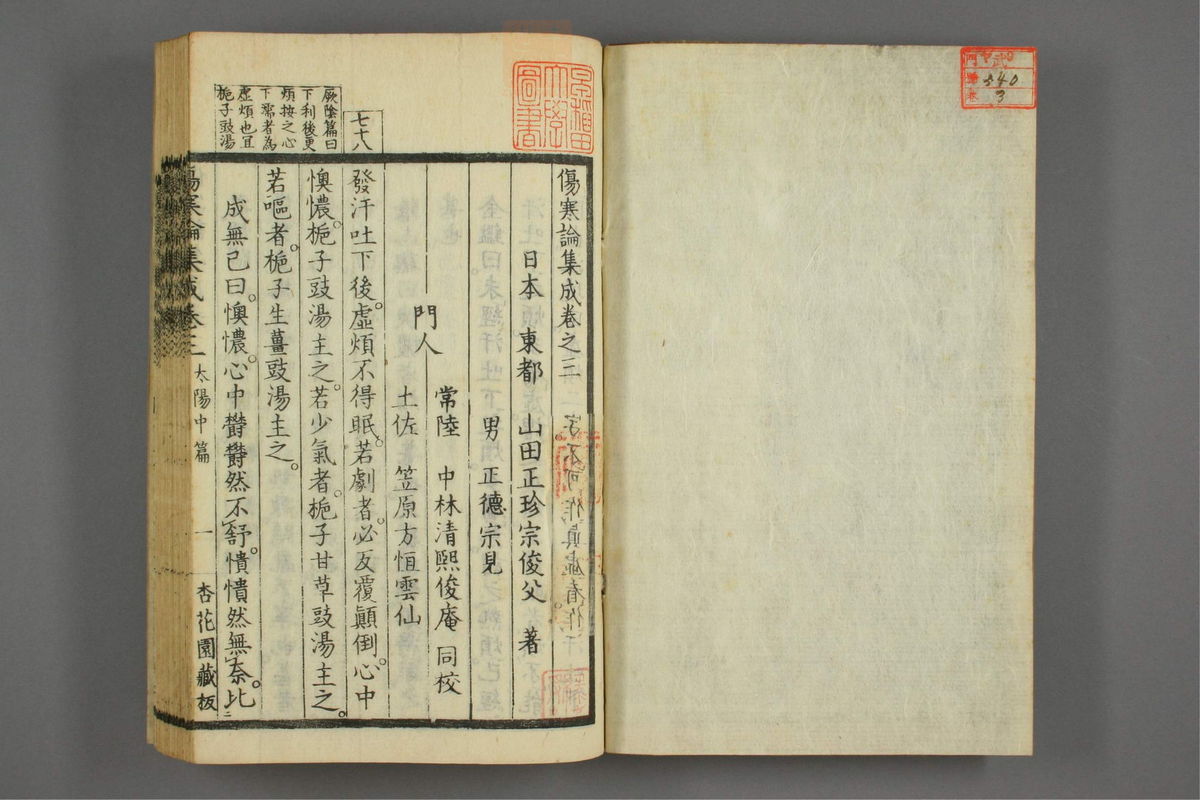 540
3
早稲田
大學
圖書
傷寒論集成卷之三
日本 東都 山田正珍宗俊父 著
男 正德宗見
常陸 中林清熙俊庵 同校
門人
土佐 笠原方恒雲仙
七十八
發汗吐下後。虛煩不得眠。若劇者。必反覆顛倒。心中
懊憹。梔子豉湯主之。若少氣者。梔子甘草豉湯主之。
若嘔者。梔子生薑豉湯主之。
成無己曰。懊憹。心中欝欝然不舒。憒憒然無奈。比二
厥陰篇曰
下利後更
煩按之心
下濡者為
虛煩也宜
梔子豉湯
傷寒論集成卷三 太陽中篇 一 杏花園藏板